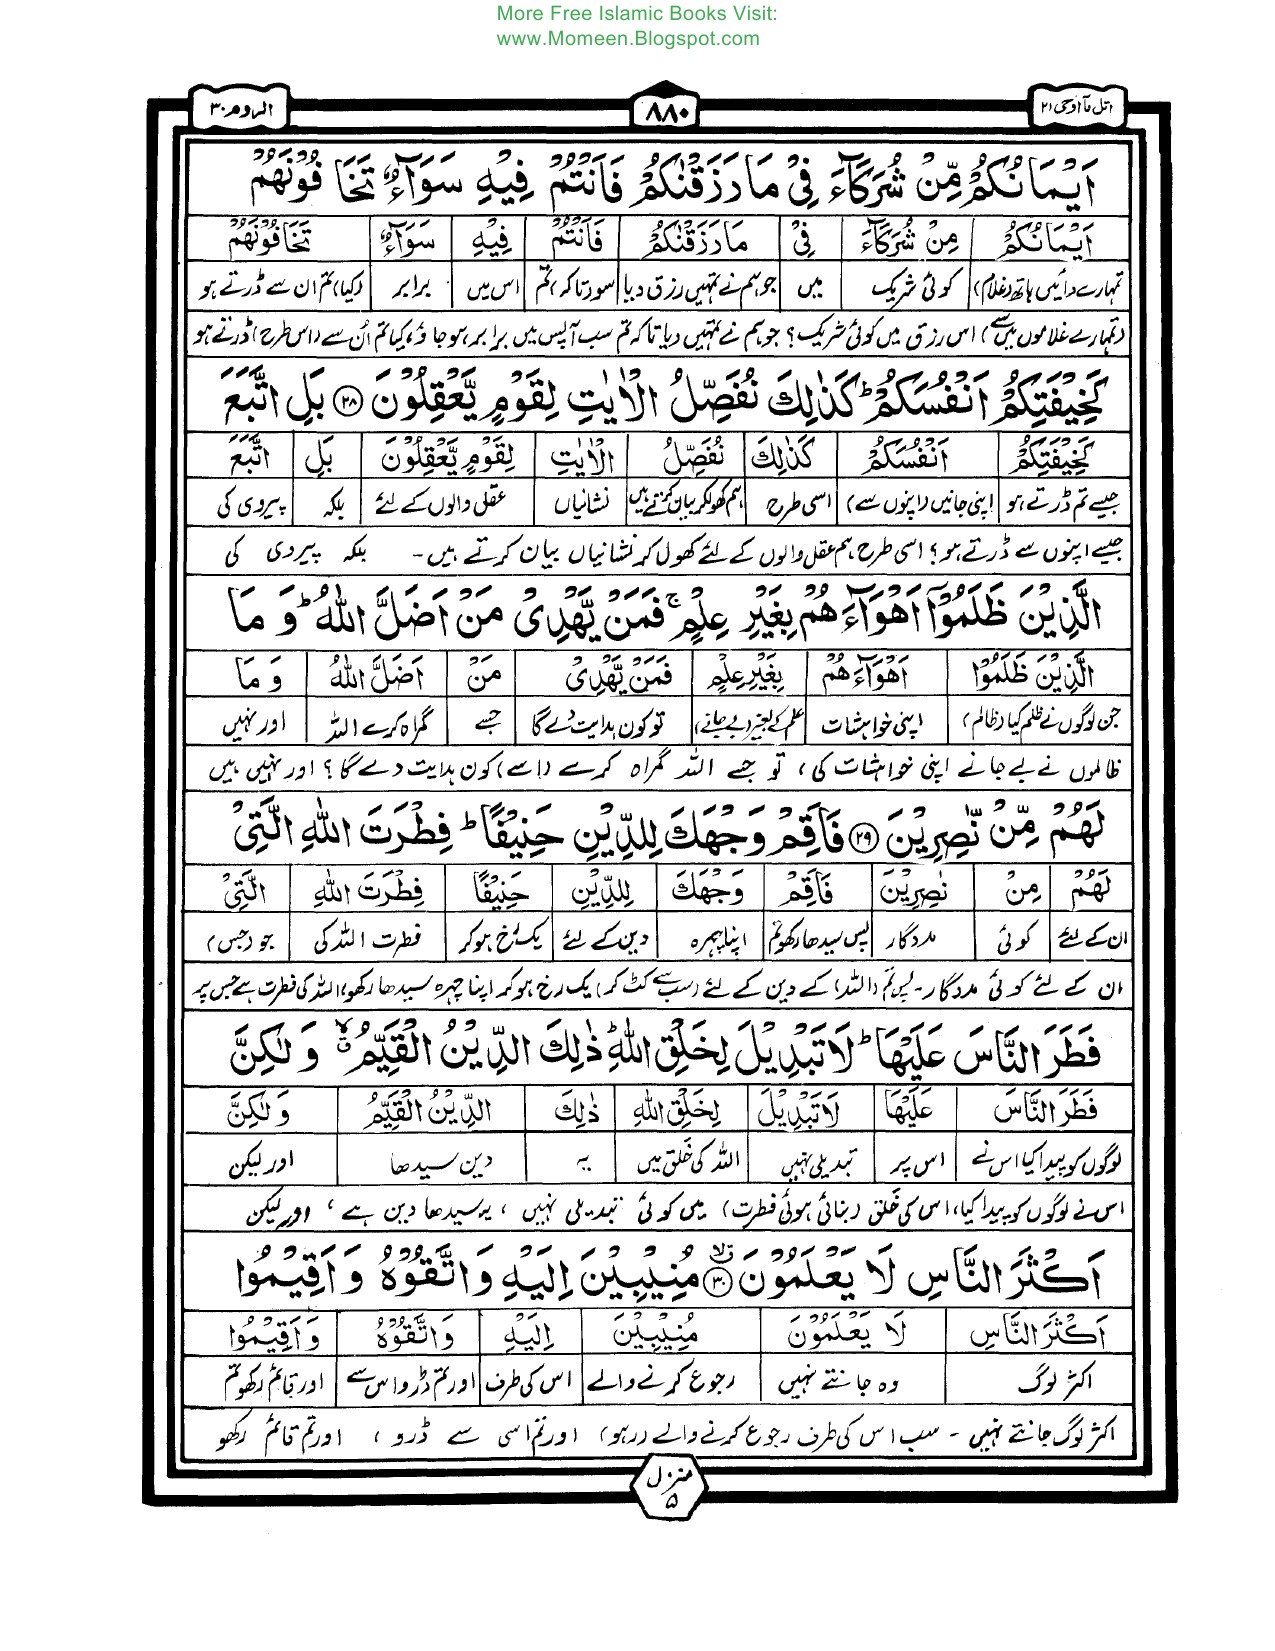 More Free Islamic Books Visit:
www.Momeen.Blogspot.com
اتل مآ اوحی ۲۱ ۸۸۰ الروم ۳۰
اَیْمَانُكُمْ مِّنْ شُرَكَآءَ فِیْ مَا رَزَقْنٰكُمْ فَاَنْتُمْ فِیْهِ سَوَآءٌ تَخَافُوْنَهُمْ
اَیْمَانُكُمْ مِنْ شُرَكَآءَ فِیْ مَا رَزَقْنٰكُمْ فَاَنْتُمْ فِیْهِ سَوَآءٌ تَخَافُوْنَهُمْ
تمہارے دائیں ہاتھ (غلام) کوئی شریک میں جو ہم نے تمہیں رزق دیا سو (تاکہ) تم اس میں برابر (کیا) تم ان سے ڈرتے ہو
(تمہارے غلاموں میں سے) اس رزق میں کوئی شریک؟ جو ہم نے تمہیں دیا تاکہ تم سب آپس میں برابر ہو جاؤ، کیا تم اُن سے (اس طرح) ڈرتے ہو
كَخِیْفَتِكُمْ اَنْفُسَكُمْ ؕ كَذٰلِكَ نُفَصِّلُ الْاٰیٰتِ لِقَوْمٍ یَّعْقِلُوْنَ ۲۸ بَلِ اتَّبَعَ
كَخِیْفَتِكُمْ اَنْفُسَكُمْ كَذٰلِكَ نُفَصِّلُ الْاٰیٰتِ لِقَوْمٍ یَّعْقِلُوْنَ بَلِ اتَّبَعَ
جیسے تم ڈرتے ہو اپنی جانیں (اپنوں سے) اسی طرح ہم کھولکر بیان کرتے ہیں نشانیاں عقل والوں کے لئے بلکہ پیروی کی
جیسے اپنوں سے ڈرتے ہو؟ اسی طرح ہم عقل والوں کے لئے کھول کر نشانیاں بیان کرتے ہیں۔ بلکہ پیروی کی
الَّذِیْنَ ظَلَمُوْۤا اَهْوَآءَهُمْ بِغَیْرِ عِلْمٍ ۚ فَمَنْ یَّهْدِیْ مَنْ اَضَلَّ اللّٰهُ ؕ وَ مَا
الَّذِیْنَ ظَلَمُوْۤا اَهْوَآءَهُمْ بِغَیْرِ عِلْمٍ فَمَنْ یَّهْدِیْ مَنْ اَضَلَّ اللّٰهُ وَ مَا
جن لوگوں نے ظلم کیا (ظالم) اپنی خواہشات علم کے بغیر (بے جانے) تو کون ہدایت دے گا جسے گمراہ کرے اللہ اور نہیں
ظالموں نے بے جانے اپنی خواہشات کی، تو جسے اللہ گمراہ کرے (اسے) کون ہدایت دے گا؟ اور نہیں ہیں
لَهُمْ مِّنْ نّٰصِرِیْنَ ۲۹ فَاَقِمْ وَجْهَكَ لِلدِّیْنِ حَنِیْفًا ؕ فِطْرَتَ اللّٰهِ الَّتِیْ
لَهُمْ مِنْ نٰصِرِیْنَ فَاَقِمْ وَجْهَكَ لِلدِّیْنِ حَنِیْفًا فِطْرَتَ اللّٰهِ الَّتِیْ
ان کے لئے کوئی مددگار پس سیدھا رکھو تم اپنا چہرہ دین کے لئے یک رُخ ہو کر فطرت اللہ کی جو (جس)
ان کے لئے کوئی مددگار۔ پس تم (اللہ) کے دین کے لئے (سب سے کٹ کر) یک رخ ہو کر اپنا چہرہ سیدھا رکھو، اللہ کی فطرت ہے جس پر
فَطَرَ النَّاسَ عَلَیْهَا ؕ لَا تَبْدِیْلَ لِخَلْقِ اللّٰهِ ؕ ذٰلِكَ الدِّیْنُ الْقَیِّمُ ۙ وَ لٰكِنَّ
فَطَرَ النَّاسَ عَلَیْهَا لَا تَبْدِیْلَ لِخَلْقِ اللّٰهِ ذٰلِكَ الدِّیْنُ الْقَیِّمُ وَ لٰكِنَّ
لوگوں کو پیدا کیا اس نے اس پر تبدیلی نہیں اللہ کی خَلق میں یہ دین سیدھا اور لیکن
اس نے لوگوں کو پیدا کیا، اس کی خَلق (بنائی ہوئی فطرت) میں کوئی تبدیلی نہیں، یہ سیدھا دین ہے، اور لیکن
اَكْثَرَ النَّاسِ لَا یَعْلَمُوْنَ ۳۰ مُنِیْبِیْنَ اِلَیْهِ وَ اتَّقُوْهُ وَ اَقِیْمُوا
اَكْثَرَ النَّاسِ لَا یَعْلَمُوْنَ مُنِیْبِیْنَ اِلَیْهِ وَ اتَّقُوْهُ وَ اَقِیْمُوا
اکثر لوگ وہ جانتے نہیں رجوع کرنے والے اس کی طرف اور تم ڈرو اس سے اور قائم رکھو تم
اکثر لوگ جانتے نہیں۔ سب اس کی طرف رجوع کرنے والے (رہو) اور تم اسی سے ڈرو، اور تم قائم رکھو
منزل ۵